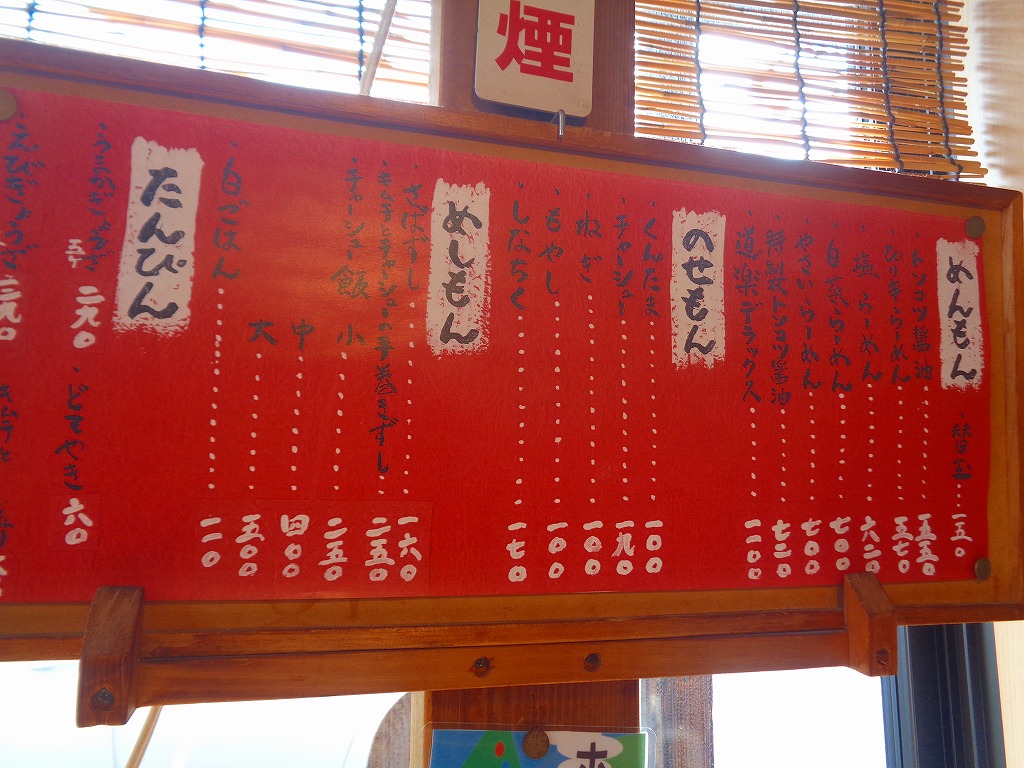 煙
めんもん
・替玉 一五〇
・トンコツ醤油 五五〇
・ぴり辛らーめん 五七〇
・塩らーめん 六二〇
・白菜らーめん 七〇〇
・やさいらーめん 七〇〇
・特製トンコツ醤油 七三〇
・道楽デラックス 一一〇〇
のせもん
・くんたま 一〇〇
・チャーシュー 一九〇
・ねぎ 一〇〇
・もやし 一〇〇
・しなちく 一七〇
めしもん
・さばずし 一六〇
・キムチとチャーシューの手巻きずし 二五〇
・チャーシュー飯 小 二五〇
中 四〇〇
大 五〇〇
・白ごはん 一二〇
たんぴん
二九〇
・どてやき 六〇
えびぎょうざ 二九〇
キムチ
ホ